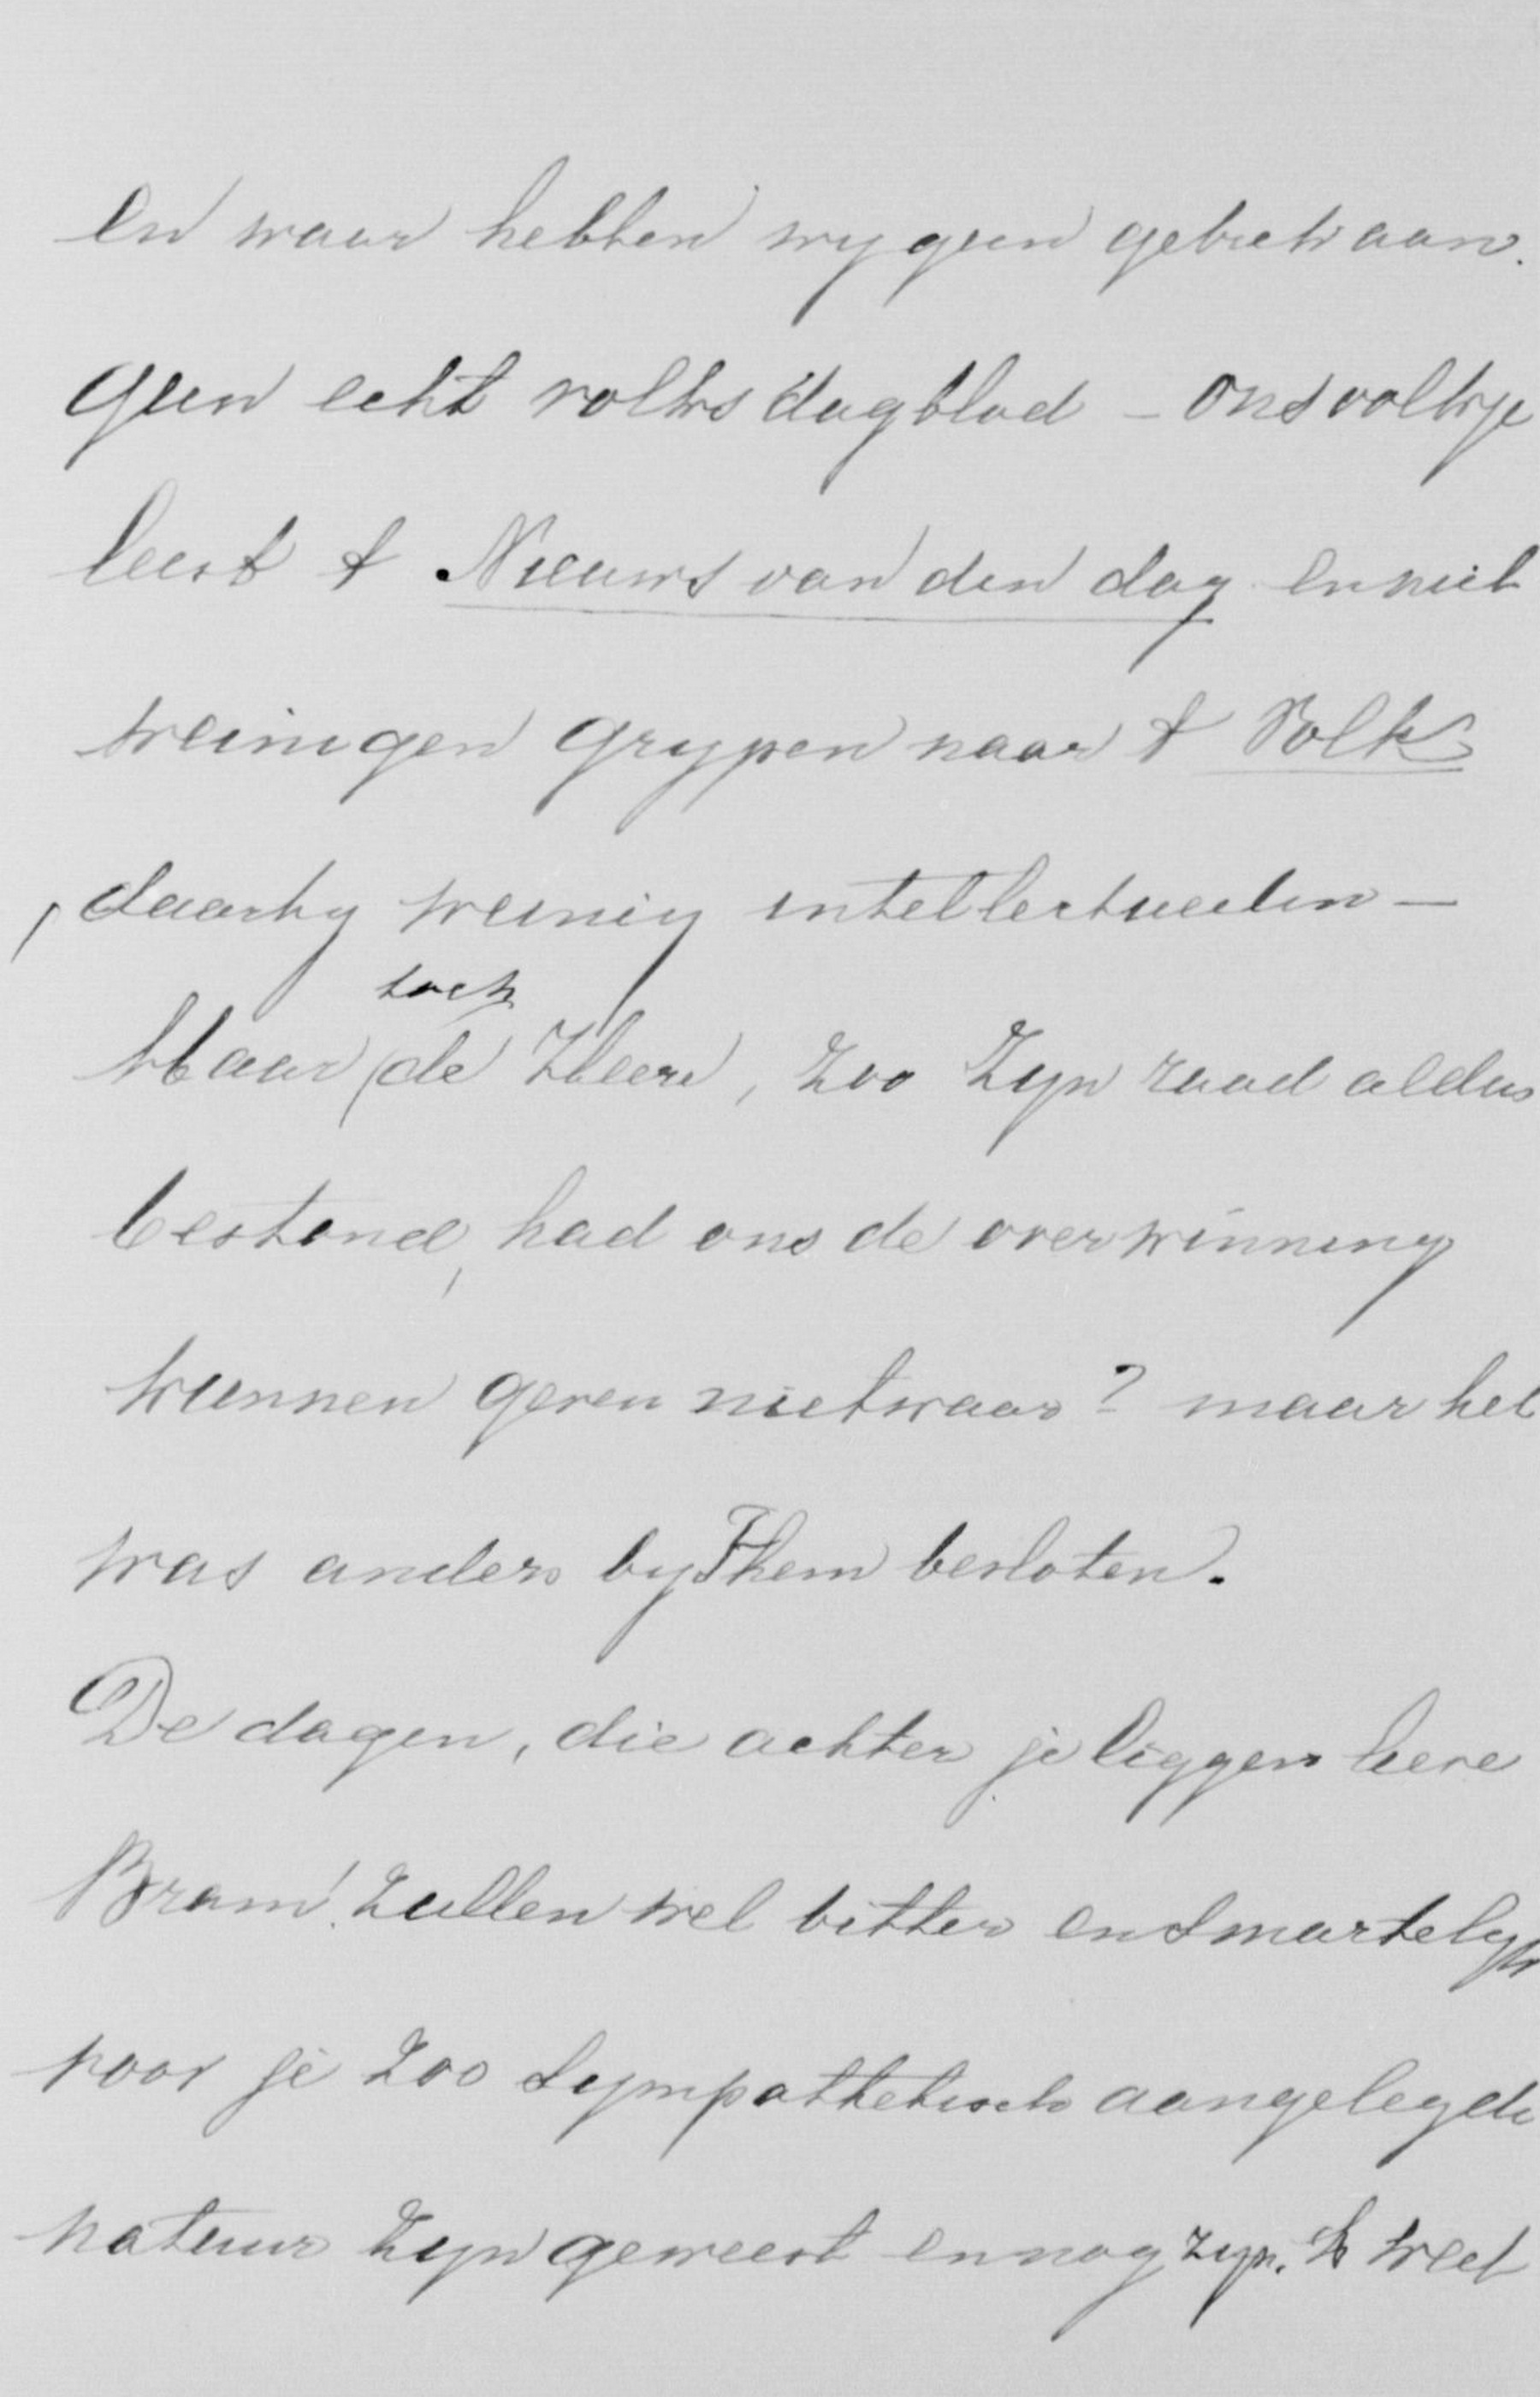 en waar hebben wy geen gebrek aan.
Geen echt volksdagblad – ons volkje
leest 't Nieuws van den dag en niet
weinigen grypen naar 't Volk
, daarby weinig intellectueelen –
toch
Maar de Heere, zoo Zyn raad aldus
bestond, had ons de overwinning
kunnen geven nietwaar? maar het
was anders by Hem besloten.
De dagen, die achter je liggen lieve
Bram! zullen wel bitter en smartelyk
voor je zoo sympathetisch aangelegde
natuur zyn geweest en nog zyn. Ik weet